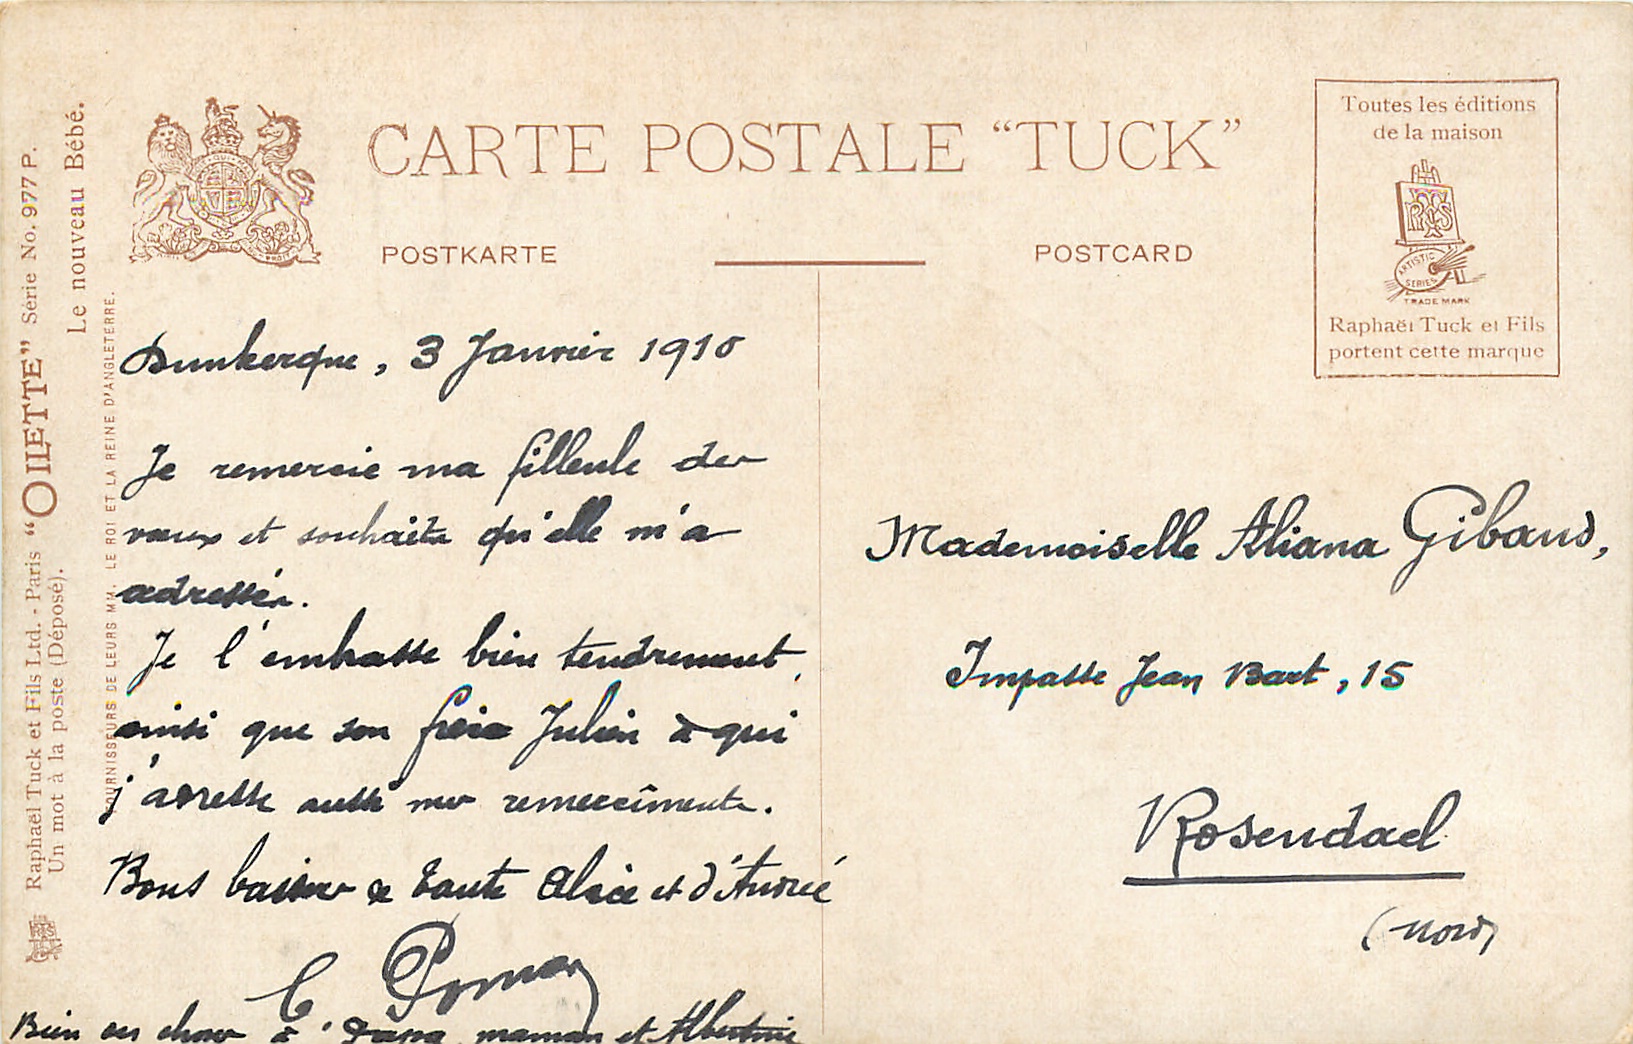 CARTE POSTALE “TUCK”
POSTKARTE
POSTCARD
Toutes les éditions
de la maison
ARTISTIC
SERIES
TRADE MARK
Raphaël Tuck et Fils
portent cette marque
Raphaël Tuck et Fils Ltd. - Paris “OILETTE” Série No. 977 P.
Un mot à la poste (Déposé).
Le nouveau Bébé.
FOURNISSEURS DE LEURS MM. LE ROI ET LA REINE D'ANGLETERRE.
Dunkerque, 3 Janvier 1910
Je remercie ma filleule des
vœux et souhaits qu'elle m'a
adressés.
Je l'embrasse bien tendrement,
ainsi que son frère Julien à qui
j'adresse aussi mes remercîments.
Bons baisers de tante Alice et d'André
Bien des choses à Papa, maman et Albertine
Mademoiselle Aliana Gibaud,
Impasse Jean Bart, 15
Rosendael
(Nord)